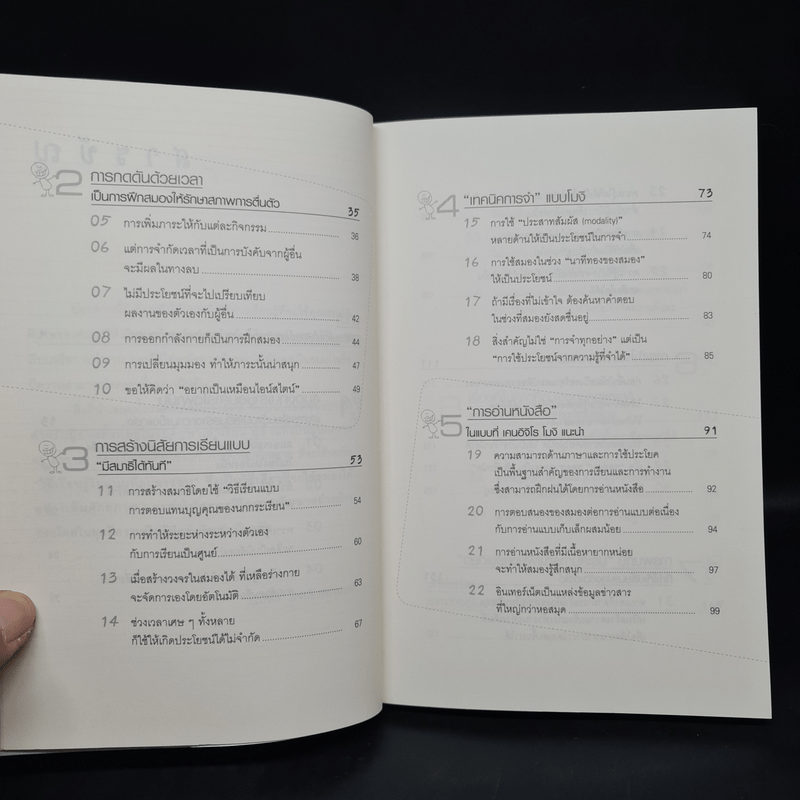 2 การกดดันด้วยเวลา
เป็นการฝึกสมองให้รักษาสภาพการตื่นตัว 35
05 การเพิ่มภาระให้กับแต่ละกิจกรรม 36
06 แต่การจำกัดเวลาที่เป็นการบังคับจากผู้อื่น
จะมีผลในทางลบ 38
07 ไม่มีประโยชน์ที่จะไปเปรียบเทียบ
ผลงานของตัวเองกับผู้อื่น 42
08 การออกกำลังกายก็เป็นการฝึกสมอง 44
09 การเปลี่ยนมุมมอง ทำให้ภาระนั้นน่าสนุก 47
10 ขอให้คิดว่า "อยากเป็นเหมือนไอน์สไตน์" 49
3 การสร้างนิสัยการเรียนแบบ
"มีสมาธิได้ทันที" 53
11 การสร้างสมาธิโดยใช้ "วิธีเรียนแบบ
การตอบแทนบุญคุณของนกกระเรียน" 54
12 การทำให้ระยะห่างระหว่างตัวเอง
กับการเรียนเป็นศูนย์ 60
13 เมื่อสร้างวงจรในสมองได้ ที่เหลือร่างกาย
จะจัดการเองโดยอัตโนมัติ 63
14 ช่วงเวลาเศษ ๆ ทั้งหลาย
ก็ใช้ให้เกิดประโยชน์ได้ไม่จำกัด 67
4 "เทคนิคการจำ" แบบโมงิ 73
15 การใช้ "ประสาทสัมผัส (modality)"
หลายด้านให้เป็นประโยชน์ในการจำ 74
16 การใช้สมองในช่วง "นาทีทองของสมอง"
ให้เป็นประโยชน์ 80
17 ถ้ามีเรื่องที่ไม่เข้าใจ ต้องค้นหาคำตอบ
ในช่วงที่สมองยังสดชื่นอยู่ 83
18 สิ่งสำคัญไม่ใช่ "การจำทุกอย่าง" แต่เป็น
"การใช้ประโยชน์จากความรู้ที่จำได้" 85
5 "การอ่านหนังสือ"
ในแบบที่ เคนอิจิโร โมงิ แนะนำ 91
19 ความสามารถด้านภาษาและการใช้ประโยค
เป็นพื้นฐานสำคัญของการเรียนและการทำงาน
ซึ่งสามารถฝึกฝนได้โดยการอ่านหนังสือ 92
20 การตอบสนองของสมองต่อการอ่านแบบต่อเนื่อง
กับการอ่านแบบเก็บเล็กผสมน้อย 94
21 การอ่านหนังสือที่มีเนื้อหายากหน่อย
จะทำให้สมองรู้สึกสนุก 97
22 อินเทอร์เน็ตเป็นแหล่งข้อมูลข่าวสาร
ที่ใหญ่กว่าหอสมุด 99